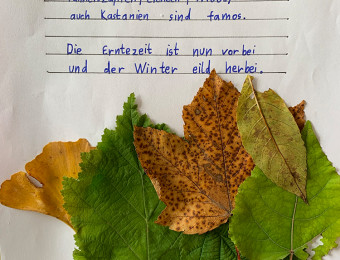 auch Kastanien sind famos.
Die Erntezeit ist nun vorbei
und der Winter eild herbei.